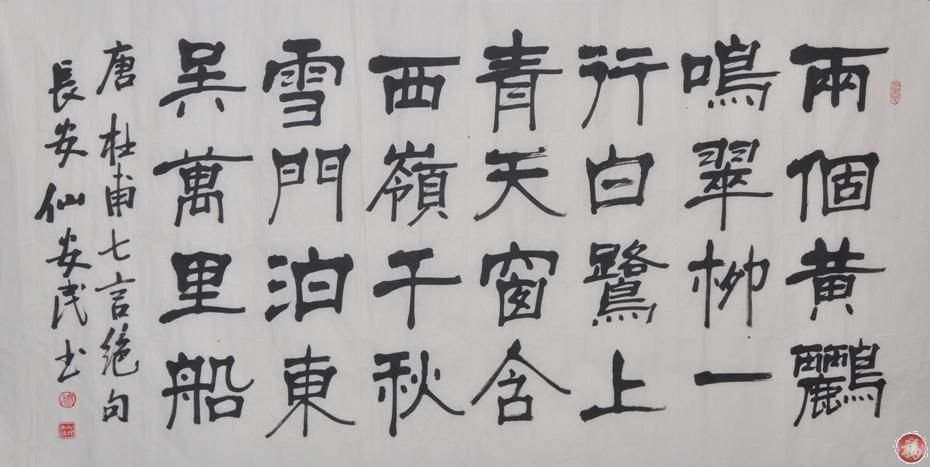 兩個黃鸝
鳴翠柳一
行白鷺上
青天窗含
西嶺千秋
雪門泊東
吴萬里船
唐杜甫七言絕句
長安仙安民書
福